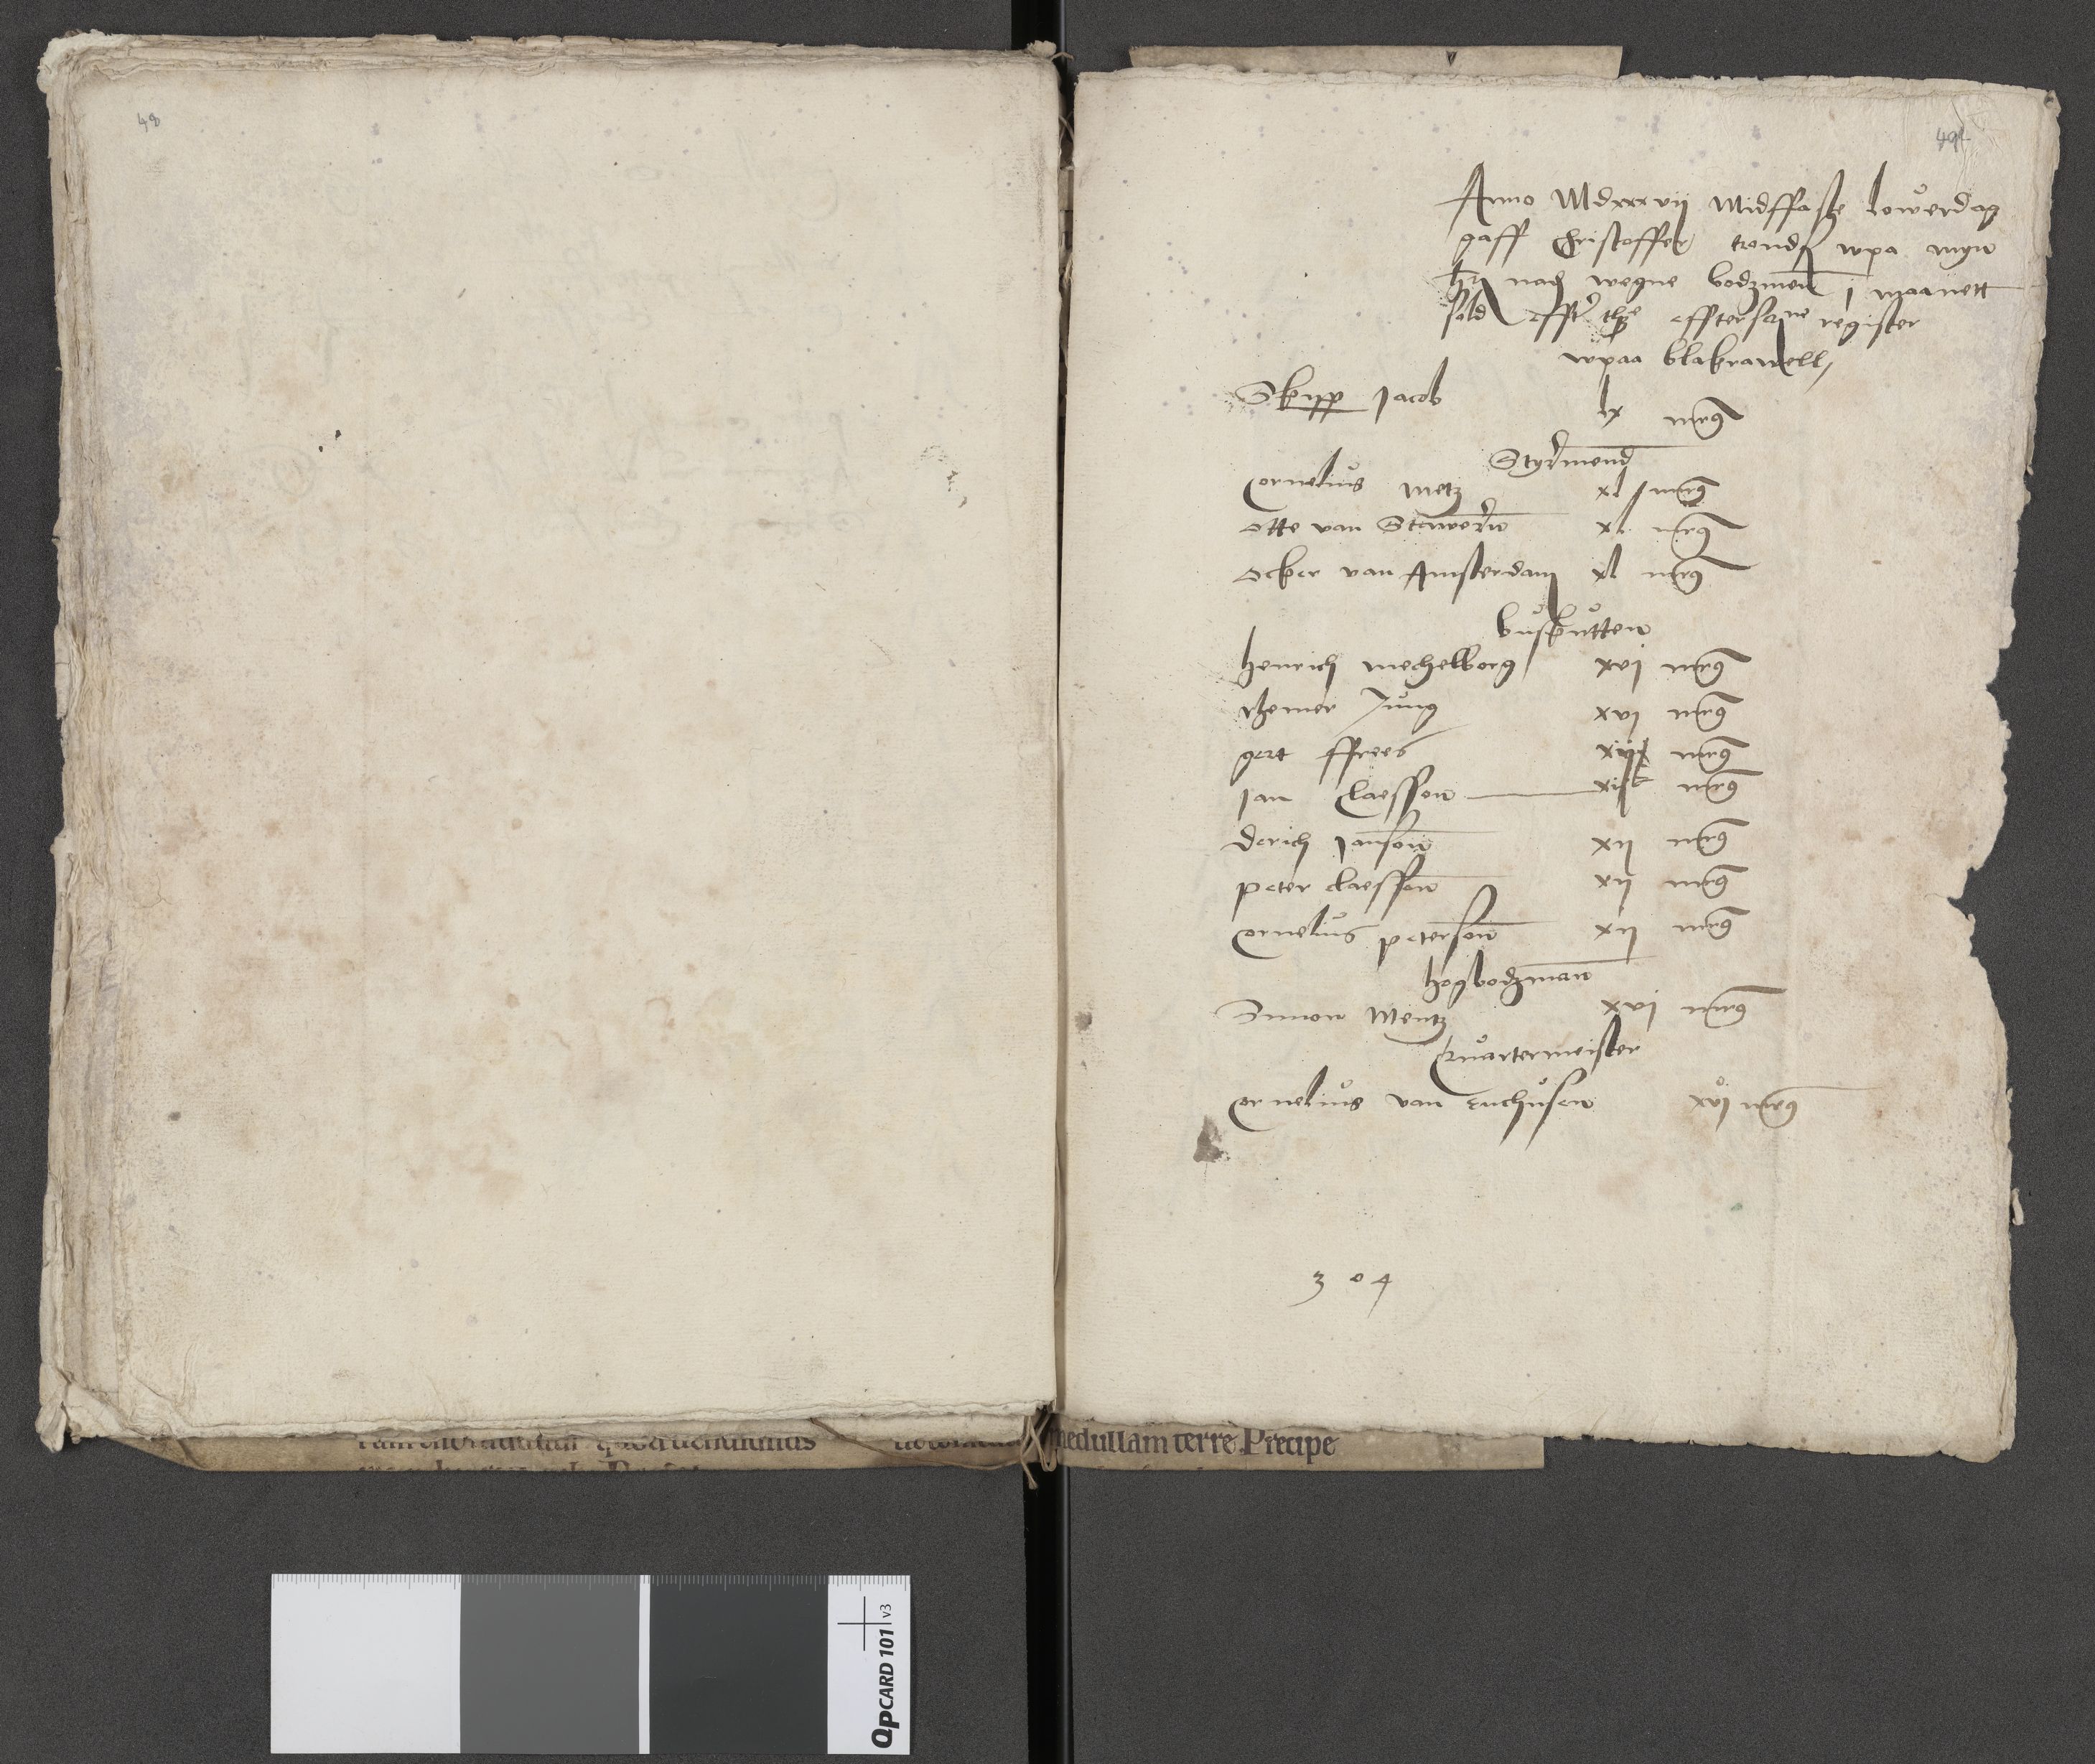 48
49
Anno Mdxxxvij Midffaste lowerdag
gaff Christoffer trondß wpa myn
her nadß wegne bodzmen j maanett
sold effter thߪ efftersarne register
wpaa blakrawell,
Skipp Jacob lx mrg
Styrmend
Cornelius Metz xl mrg
Otte van Stawern xl mrg
Ocker van Amsterdam xl mrg
buskutten
henrich mechelborg xvj mrg
Remer Jung xvj mrg
gert ffrees mrg
Jan Claesson mrg
Derich Janson xij mrg
peter claesson xij mrg
Cornelius peterson xij mrg
hogbodzman
Simon Mentz xvj mrg
Quartermeister
Cornelius van Enchusen xvj mrg
3 0 4
medullam terre Precipe
QPCARD 101 v3